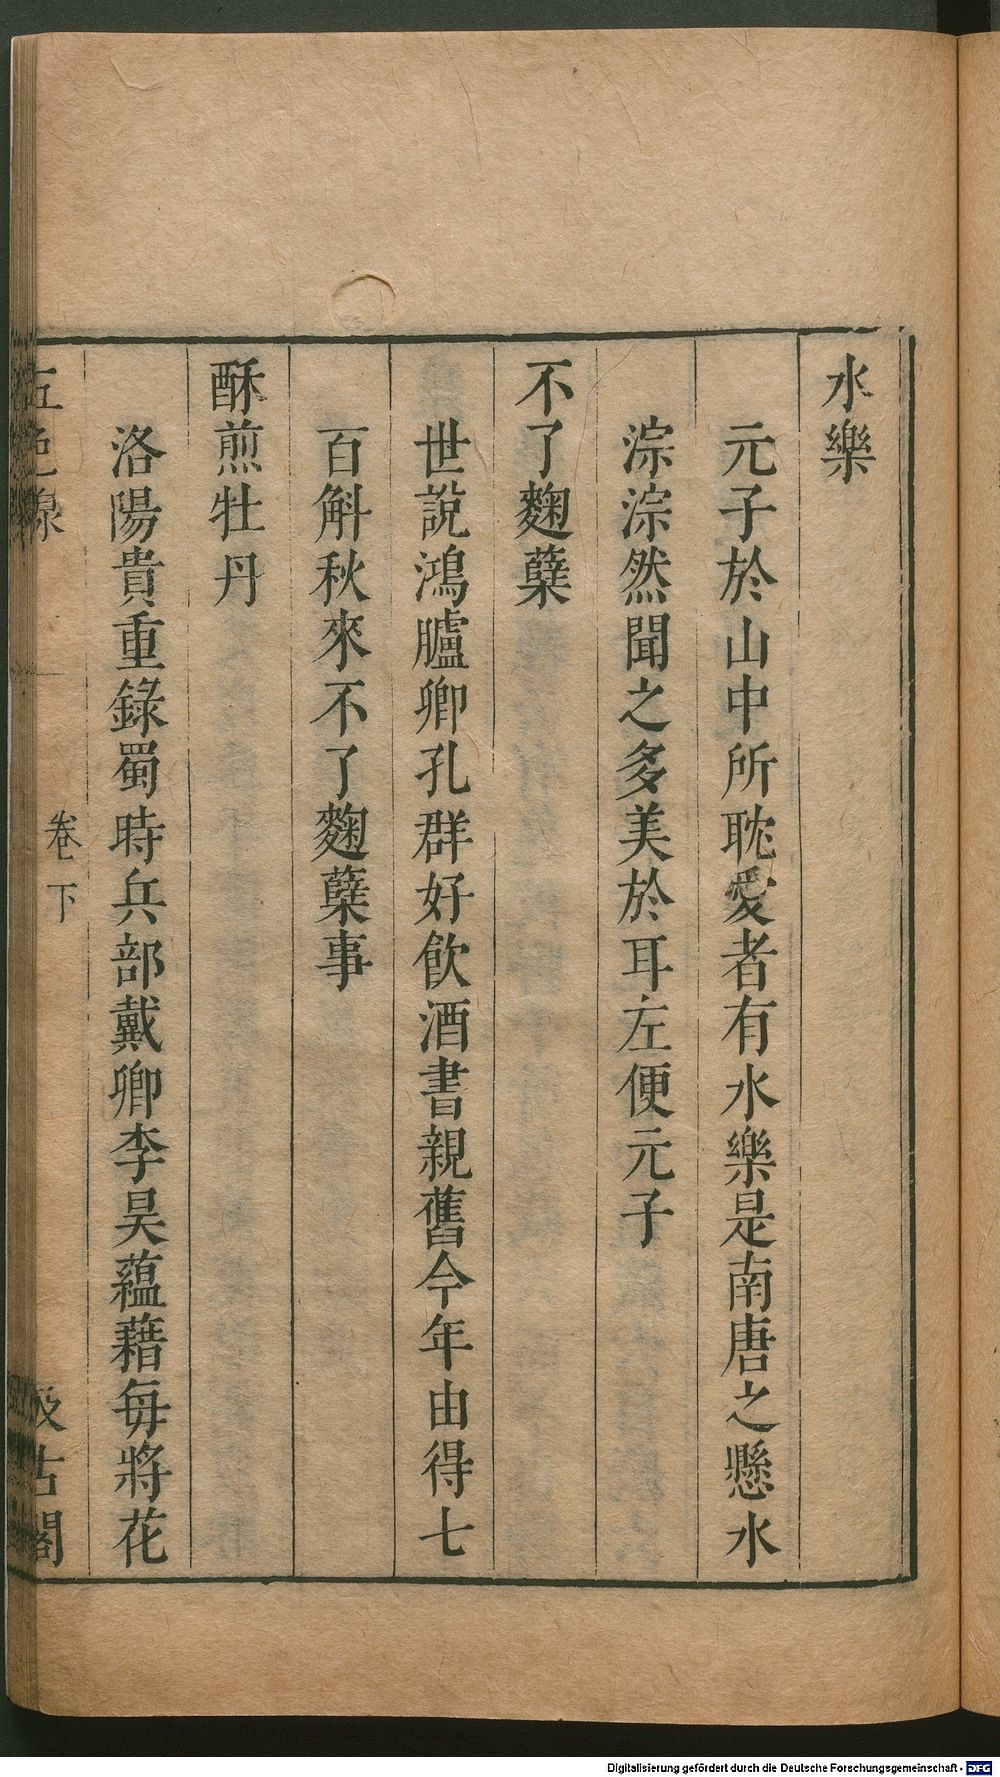 水樂
元子於山中所耽愛者有水樂是南唐之懸水
淙淙然聞之多美於耳左便元子
不了麴蘖
世說鴻臚卿孔群好飲酒書親舊今年由得七
百斛秋來不了麴蘖事
酥煎牡丹
洛陽貴重錄蜀時兵部戴卿李昊蘊藉每將花
五色線
卷下
汲古閣
Digitalisierung gefördert durch die Deutsche Forschungsgemeinschaft - DFG